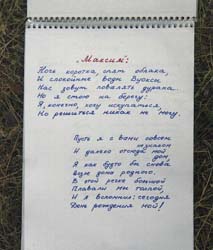 "Максим":
Ночь коротка, спят облака,
И спокойные воды Вуоксы
Нас зовут повалять дурака.
Но я стою на берегу:
Я, конечно, хочу искупаться,
Но решиться никак не могу.
Пусть я с вами совсем
незнаком
И далеко отсюда мой
дом
Я как будто бы снова
Возле дома родного.
В этой речке большой
Плавали мы толпой,
И я вспомнил: сегодня
День рождения мой!